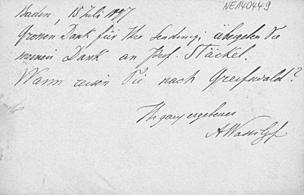 NE140449
Baden, 15 Juli 1897
Grossen Dank für Ihre Sendung; übergeben Sie
meinen Dank an Prof. Stäckel.
Wann reisen Sie nach Greifswald?
Ihr ganz ergebener
A Wassilief